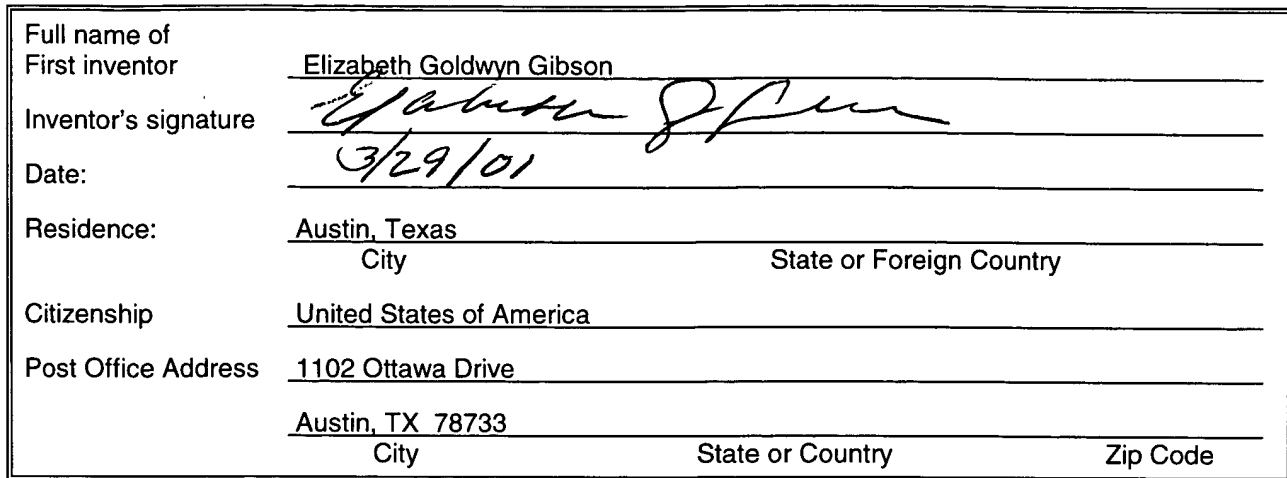 Full name of
First inventor Elizabeth Goldwyn Gibson
Inventor's signature
Date: 3/29/01
Residence: Austin, Texas
City State or Foreign Country
Citizenship United States of America
Post Office Address 1102 Ottawa Drive
Austin, TX 78733
City State or Country Zip Code